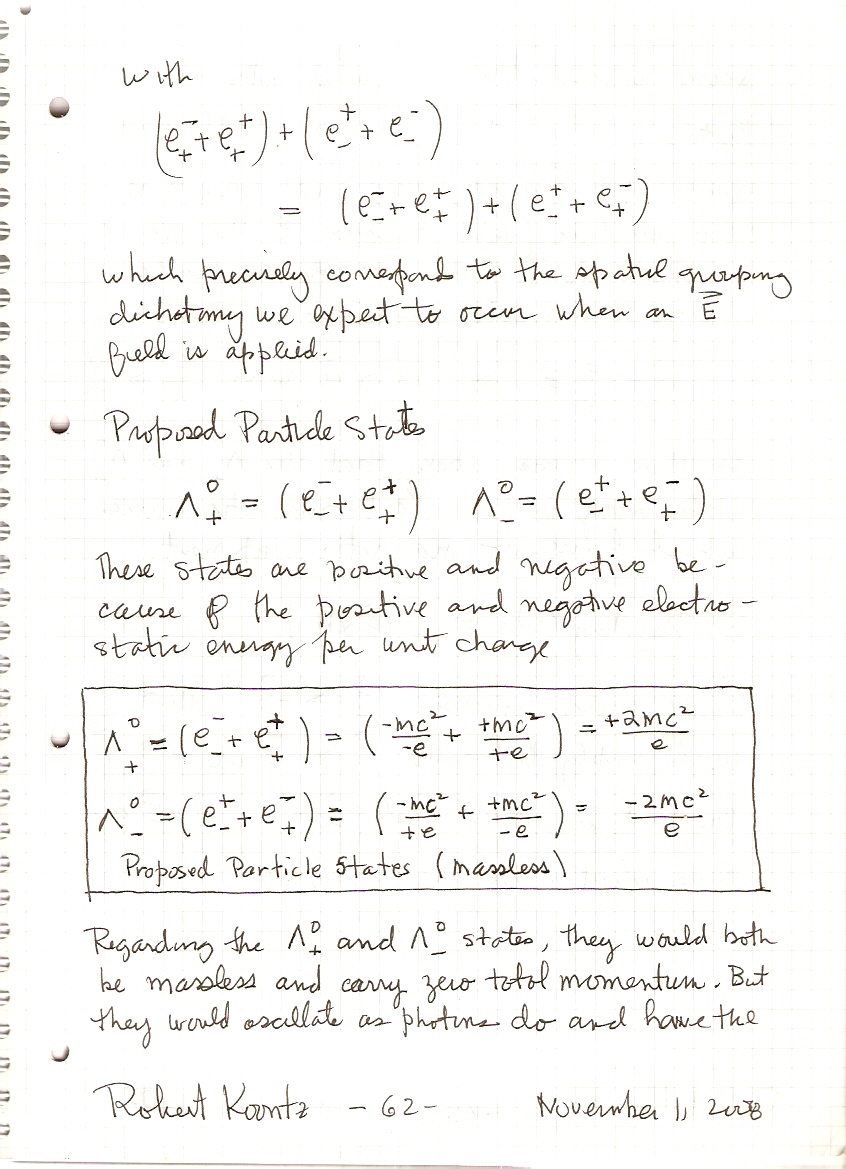 with
(e₊⁻ + e₊⁺) + (e₋⁺ + e₋⁻)
= (e₋⁻ + e₊⁺) + (e₋⁺ + e₊⁻)
which precisely correspond to the spatial grouping
dichotomy we expect to occur when an E⃗
field is applied.
Proposed Particle States
Λ₊⁰ = (e₋⁻ + e₊⁺) Λ₋⁰ = (e₋⁺ + e₊⁻)
These states are positive and negative be-
cause of the positive and negative electro-
static energy per unit charge
Λ₊⁰ = (e₋⁻ + e₊⁺) = (-mc²/-e + +mc²/+e) = +2mc²/e
Λ₋⁰ = (e₋⁺ + e₊⁻) = (-mc²/+e + +mc²/-e) = -2mc²/e
Proposed Particle States (massless)
Regarding the Λ₊⁰ and Λ₋⁰ states, they would both
be massless and carry zero total momentum. But
they would oscillate as photons do and have the
Robert Koontz - 62 - November 1, 2008